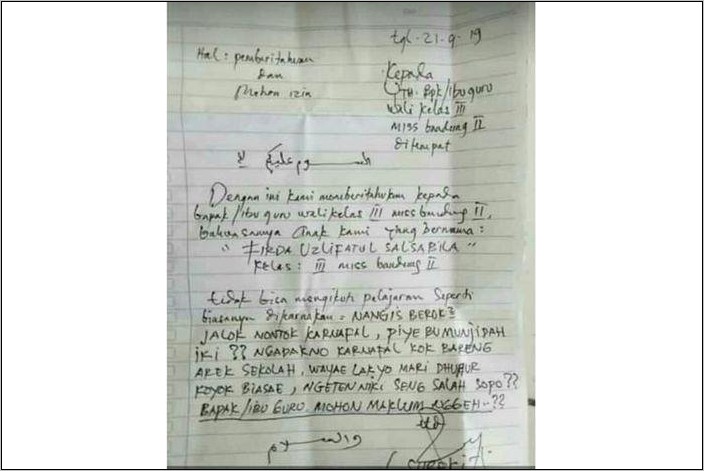 tgl - 21 - 9 - 19
Hal : pemberitahuan
dan
Mohon izin
Kepada
YTH. Bpk/ibu guru
wali kelas III
MISS bandung II
ditempat
السلام عليكم
Dengan ini kami memberitahukan kepada
bapak/ibu guru wali kelas III miss bandung II,
bahwasannya anak kami yang bernama :
" FIRDA UZLIFATUL SALSABILA "
Kelas : III miss bandung II
tidak bisa mengikuti pelajaran seperti
biasanya dikarnakan = NANGIS BEROK²
JALOK NONTOK KARNAFAL, PIYE BU MUNJIDAH
iki ?? NGADAKNO KARNAFAL KOK BARENG
AREK SEKOLAH, WAYAE LAK YO MARI DHUHUR
KOYOK BIASAE, NGETEN NIKI SENG SALAH SOPO ??
BAPAK/IBU GURU MOHON MAKLUM NGGEH..??
والسلام
ttd